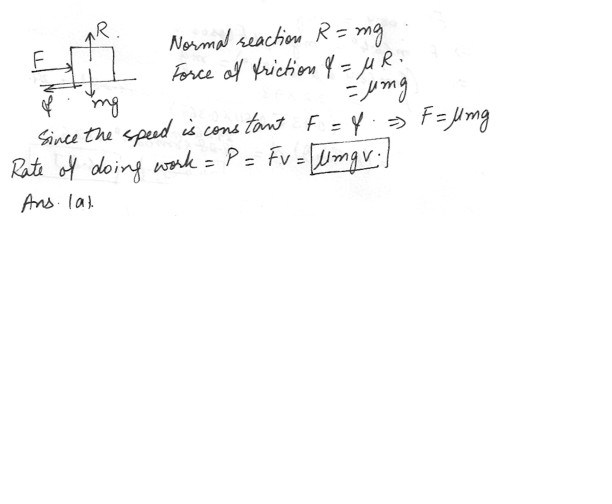 R.
F
f.
mg
Normal reaction R = mg
Force of friction f = μR.
= μmg
Since the speed is constant F = f. ⇒ F = μmg
Rate of doing work = P = Fv = μmgv.
Ans. (a).